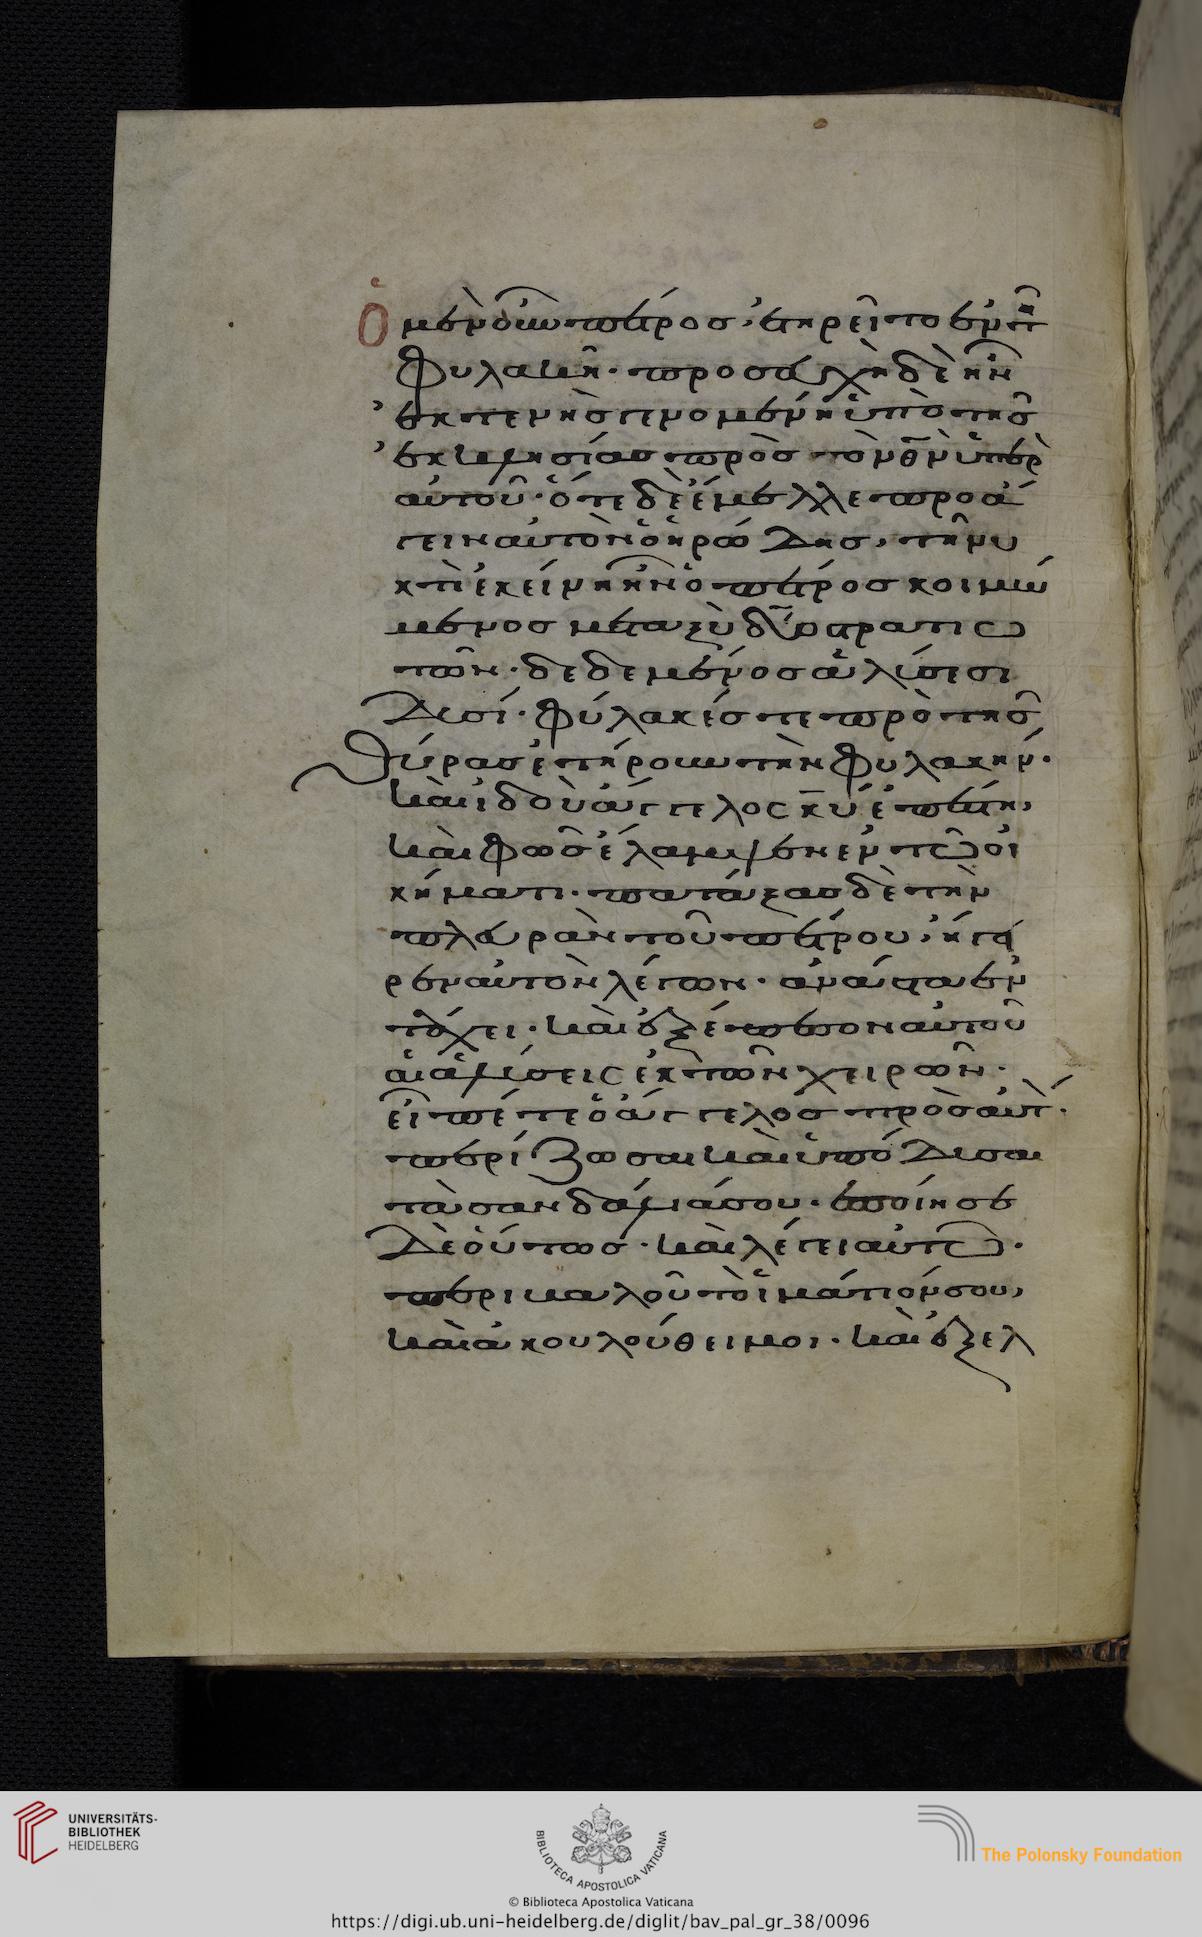 Ὁ μὲν οὖν πέτρος, ἐτηρεῖτο ἐν τῇ
φυλακῇ· προσευχὴ δὲ ἦν
ἐκτενὴς γινομένη ὑπὸ τῆς
ἐκκλησίας πρὸς τὸν θ̅ν̅ ὑπὲρ
αὐτοῦ· ὅτε δὲ ἔμελλε προά
γειν αὐτὸν ὁ ἡρώδης, τῇ νυ
κτὶ ἐκείνῃ ἦν ὁ πέτρος κοιμώ
μενος μεταξὺ δύο στρατιω
τῶν· δεδεμένος ἁλύσεσι
δυσί· φύλακές τε πρὸ τῆς
θύρας ἐτήρουν τὴν φυλακήν·
καὶ ἰδοὺ ἄγγελος κ̅υ̅ ἐπέστη,
καὶ φῶς ἔλαμψεν ἐν τῷ οἰ
κήματι· πατάξας δὲ τὴν
πλευρὰν τοῦ πέτρου, ἤγει
ρεν αὐτὸν λέγων· ἀνάστα ἐν
τάχει· καὶ ἐξέπεσον αὐτοῦ
αἱ ἁλύσεις ἐκ τῶν χειρῶν·
εἶπέ τε ὁ ἄγγελος πρὸς αὐτ·
περίζωσαι καὶ ὑπόδησαι
τὰ σανδάλιά σου· ἐποίησε
δὲ οὕτως· καὶ λέγει αὐτῷ·
περιβαλοῦ τὸ ἱμάτιόν σου,
καὶ ἀκουλούθει μοι· καὶ ἐξελ
UNIVERSITÄTS-
BIBLIOTHEK
HEIDELBERG
BIBLIOTECA APOSTOLICA VATICANA
© Biblioteca Apostolica Vaticana
The Polonsky Foundation
https://digi.ub.uni-heidelberg.de/diglit/bav_pal_gr_38/0096